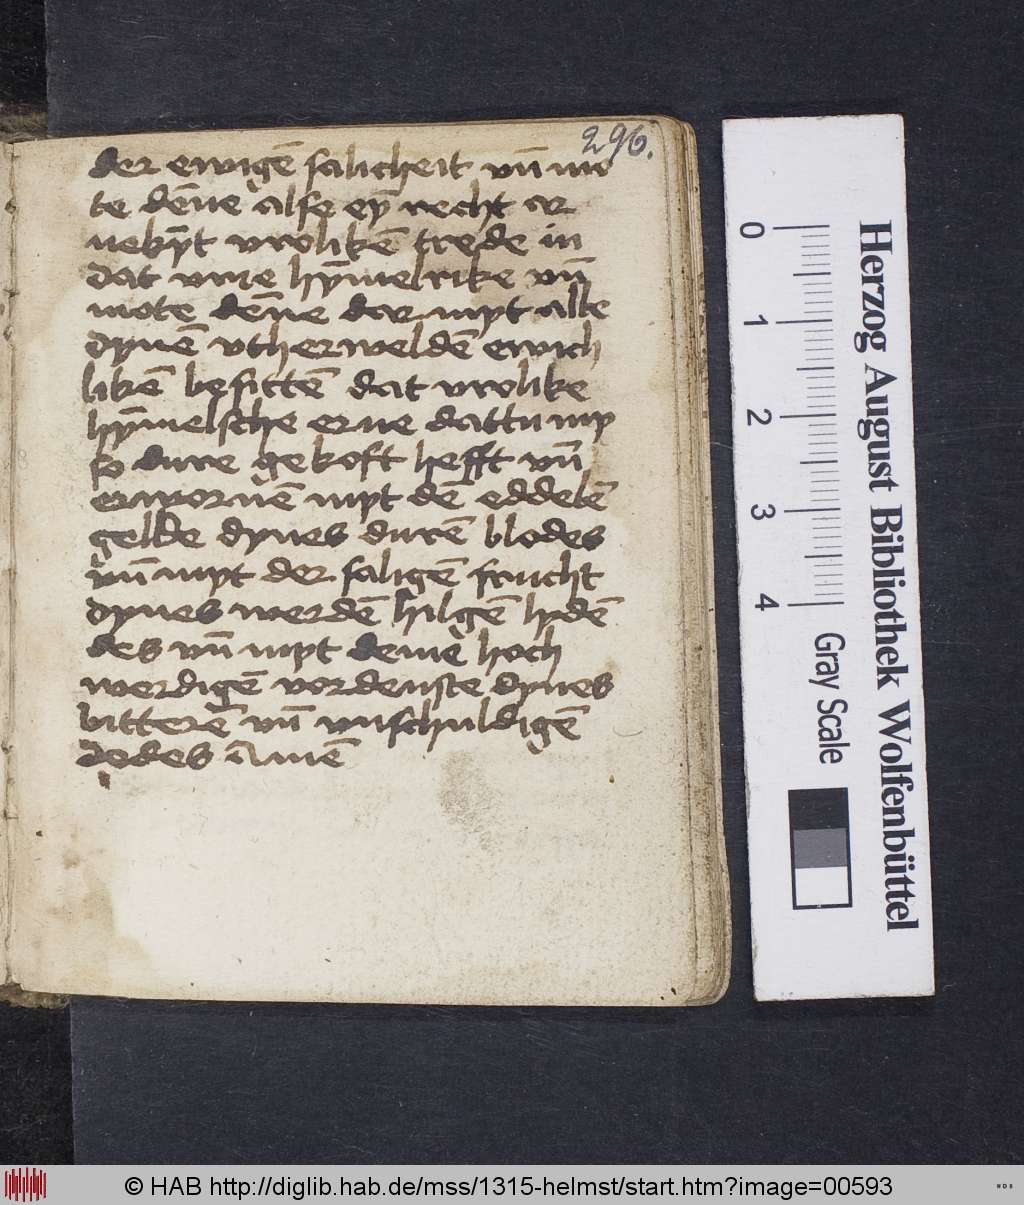 296.
der ewigē salicheit vn̄ mo
te dēne alse eȳ recht ar
uebȳt vroliken̄ trede in
dat vrye hȳmelrike vn̄
mote dēne dar myt alle
dynē vtherweldē ewich
likē besittē dat vrolike
hȳmelsche erue dattu my
so dure gekoft hefft vn̄
erworuē myt dē eddelē
gelde dynes durē blodes
vn̄ myt der saligē frucht
dynes werdē hilgē lydē
des vn̄ myt deme hoch
werdigē vordenste dynes
bitterē vn̄ vnschuldigē
dodes Amē
0
1
2
3
4
Gray Scale
Herzog August Bibliothek Wolfenbüttel
© HAB http://diglib.hab.de/mss/1315-helmst/start.htm?image=00593